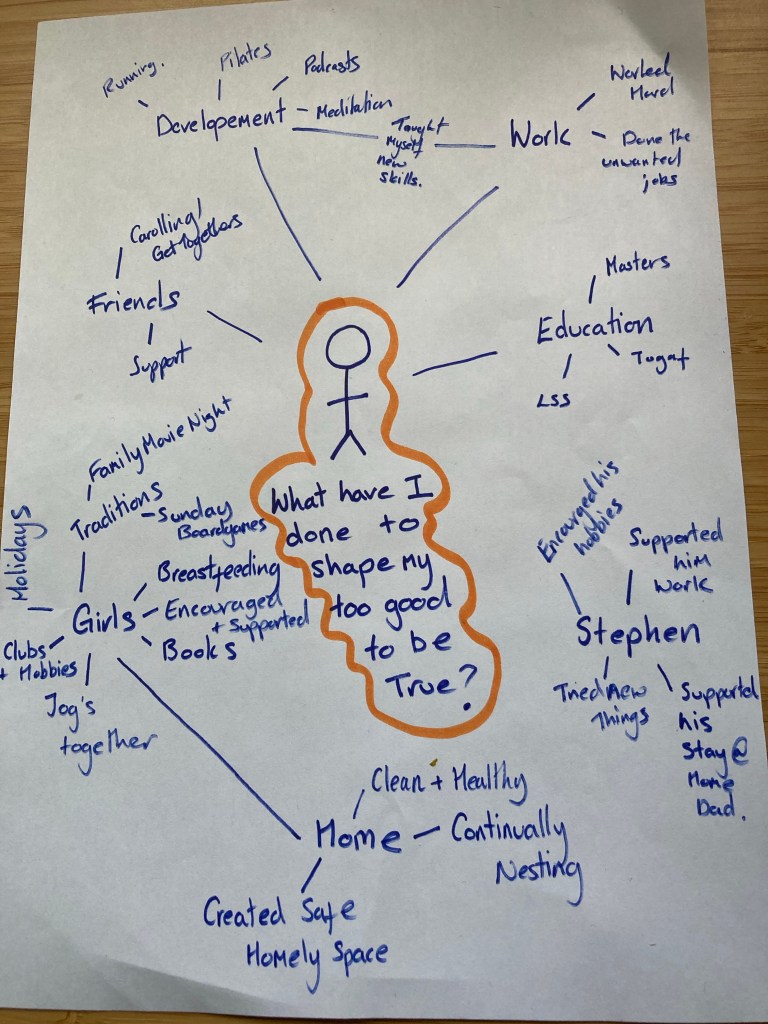 Running.
Pilates
Podcasts
Developement
Meditation
Taught
Myself
new
skills.
Work
Worked
Hard
Done the
unwanted
jobs
Carolling/
Get Togethers
Friends
Support
Masters
Education
LSS
What have I
done to
shape my
too good
to be
True?
Family Movie Night
Traditions
Sunday
Boardgames
Holidays
Girls
Breastfeeding
Encouraged
+ Supported
Books
Clubs
+ Hobbies
Jog's
together
Encouraged his
hobbies
Supported
him
Work
Stephen
Tried new
Things
Supported
his
Stay @
Home
Dad.
Clean + Healthy
Home
Continually
Nesting
Created Safe
Homely Space